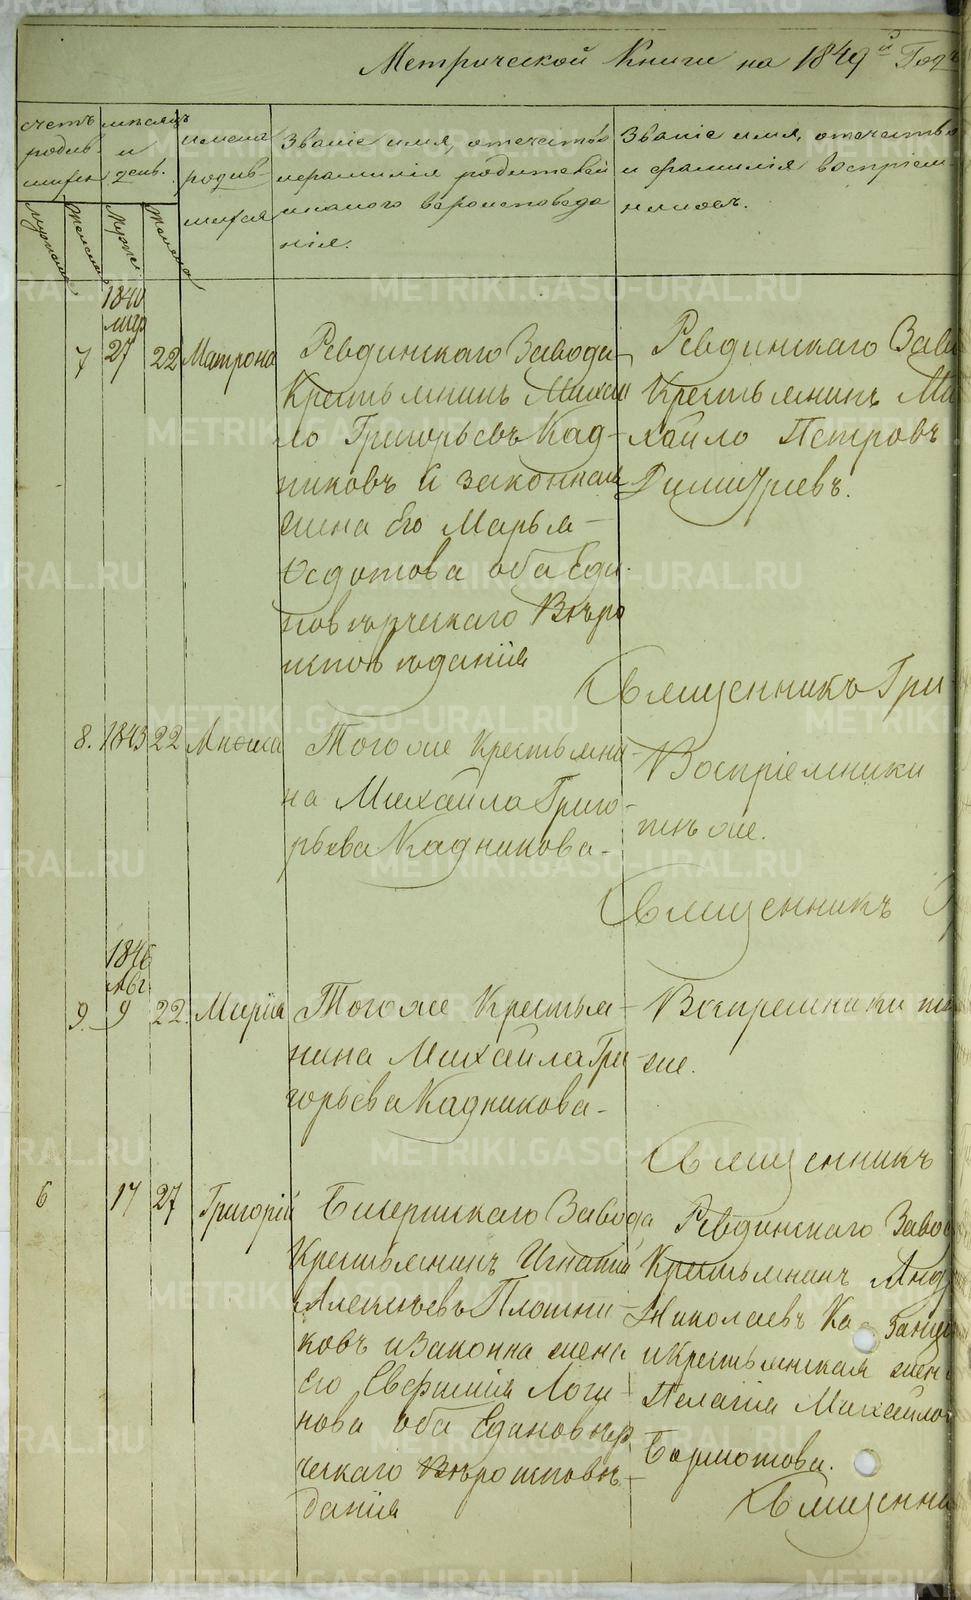 Метрической Книги на 1849й Годъ
счетъ родив- шихся
мѣсяцъ и день.
имена родив- шихся
Званіе имя, отечество
и фамилія родителей
и какого вероисповеда
нія.
Званіе имя, отечество
и фамилія воспріем-
никовъ.
Мужска
Женска
Мужска
Женска
1840
мар
7 27 22 Матрона
Ревдинскаго Завода
Крестьянинъ Михаи
ло Григорьевъ Кад-
никовъ и законная
жена Его Марья
Федотова оба Еди-
новѣрческаго Вѣро
исповѣданія
Ревдинскаго Заво
Крестьянинъ Ми
хайло Петровъ
Димитріевъ.
Священникъ Гри
8. 1843 22
Того же Крестьяни-
на Михаила Григо-
рьева Кадникова-
Воспріемники
тѣ же.
Священникъ
1846
Авг.
9. 9 22. Марія
Того же Крестья-
нина Михаила Гри
горьева Кадникова-
Воспремники тѣ
же.
Священникъ
6 17 27 Григорій
Бисертскаго Завода
Крестьянинъ Игнатій
Алексѣевъ Плотни-
ковъ и Законна жена
Его Евфимія Логи-
нова оба Единовѣр
ческаго Вѣроисповѣ-
данія
Ревдинскаго Заво
Крестьянинъ Анд
Николаевъ Ка занц
и Крестьянская жен
Пелагія Михайло
Бормотова.
Священни
METRIKI.GASO-URAL.RU